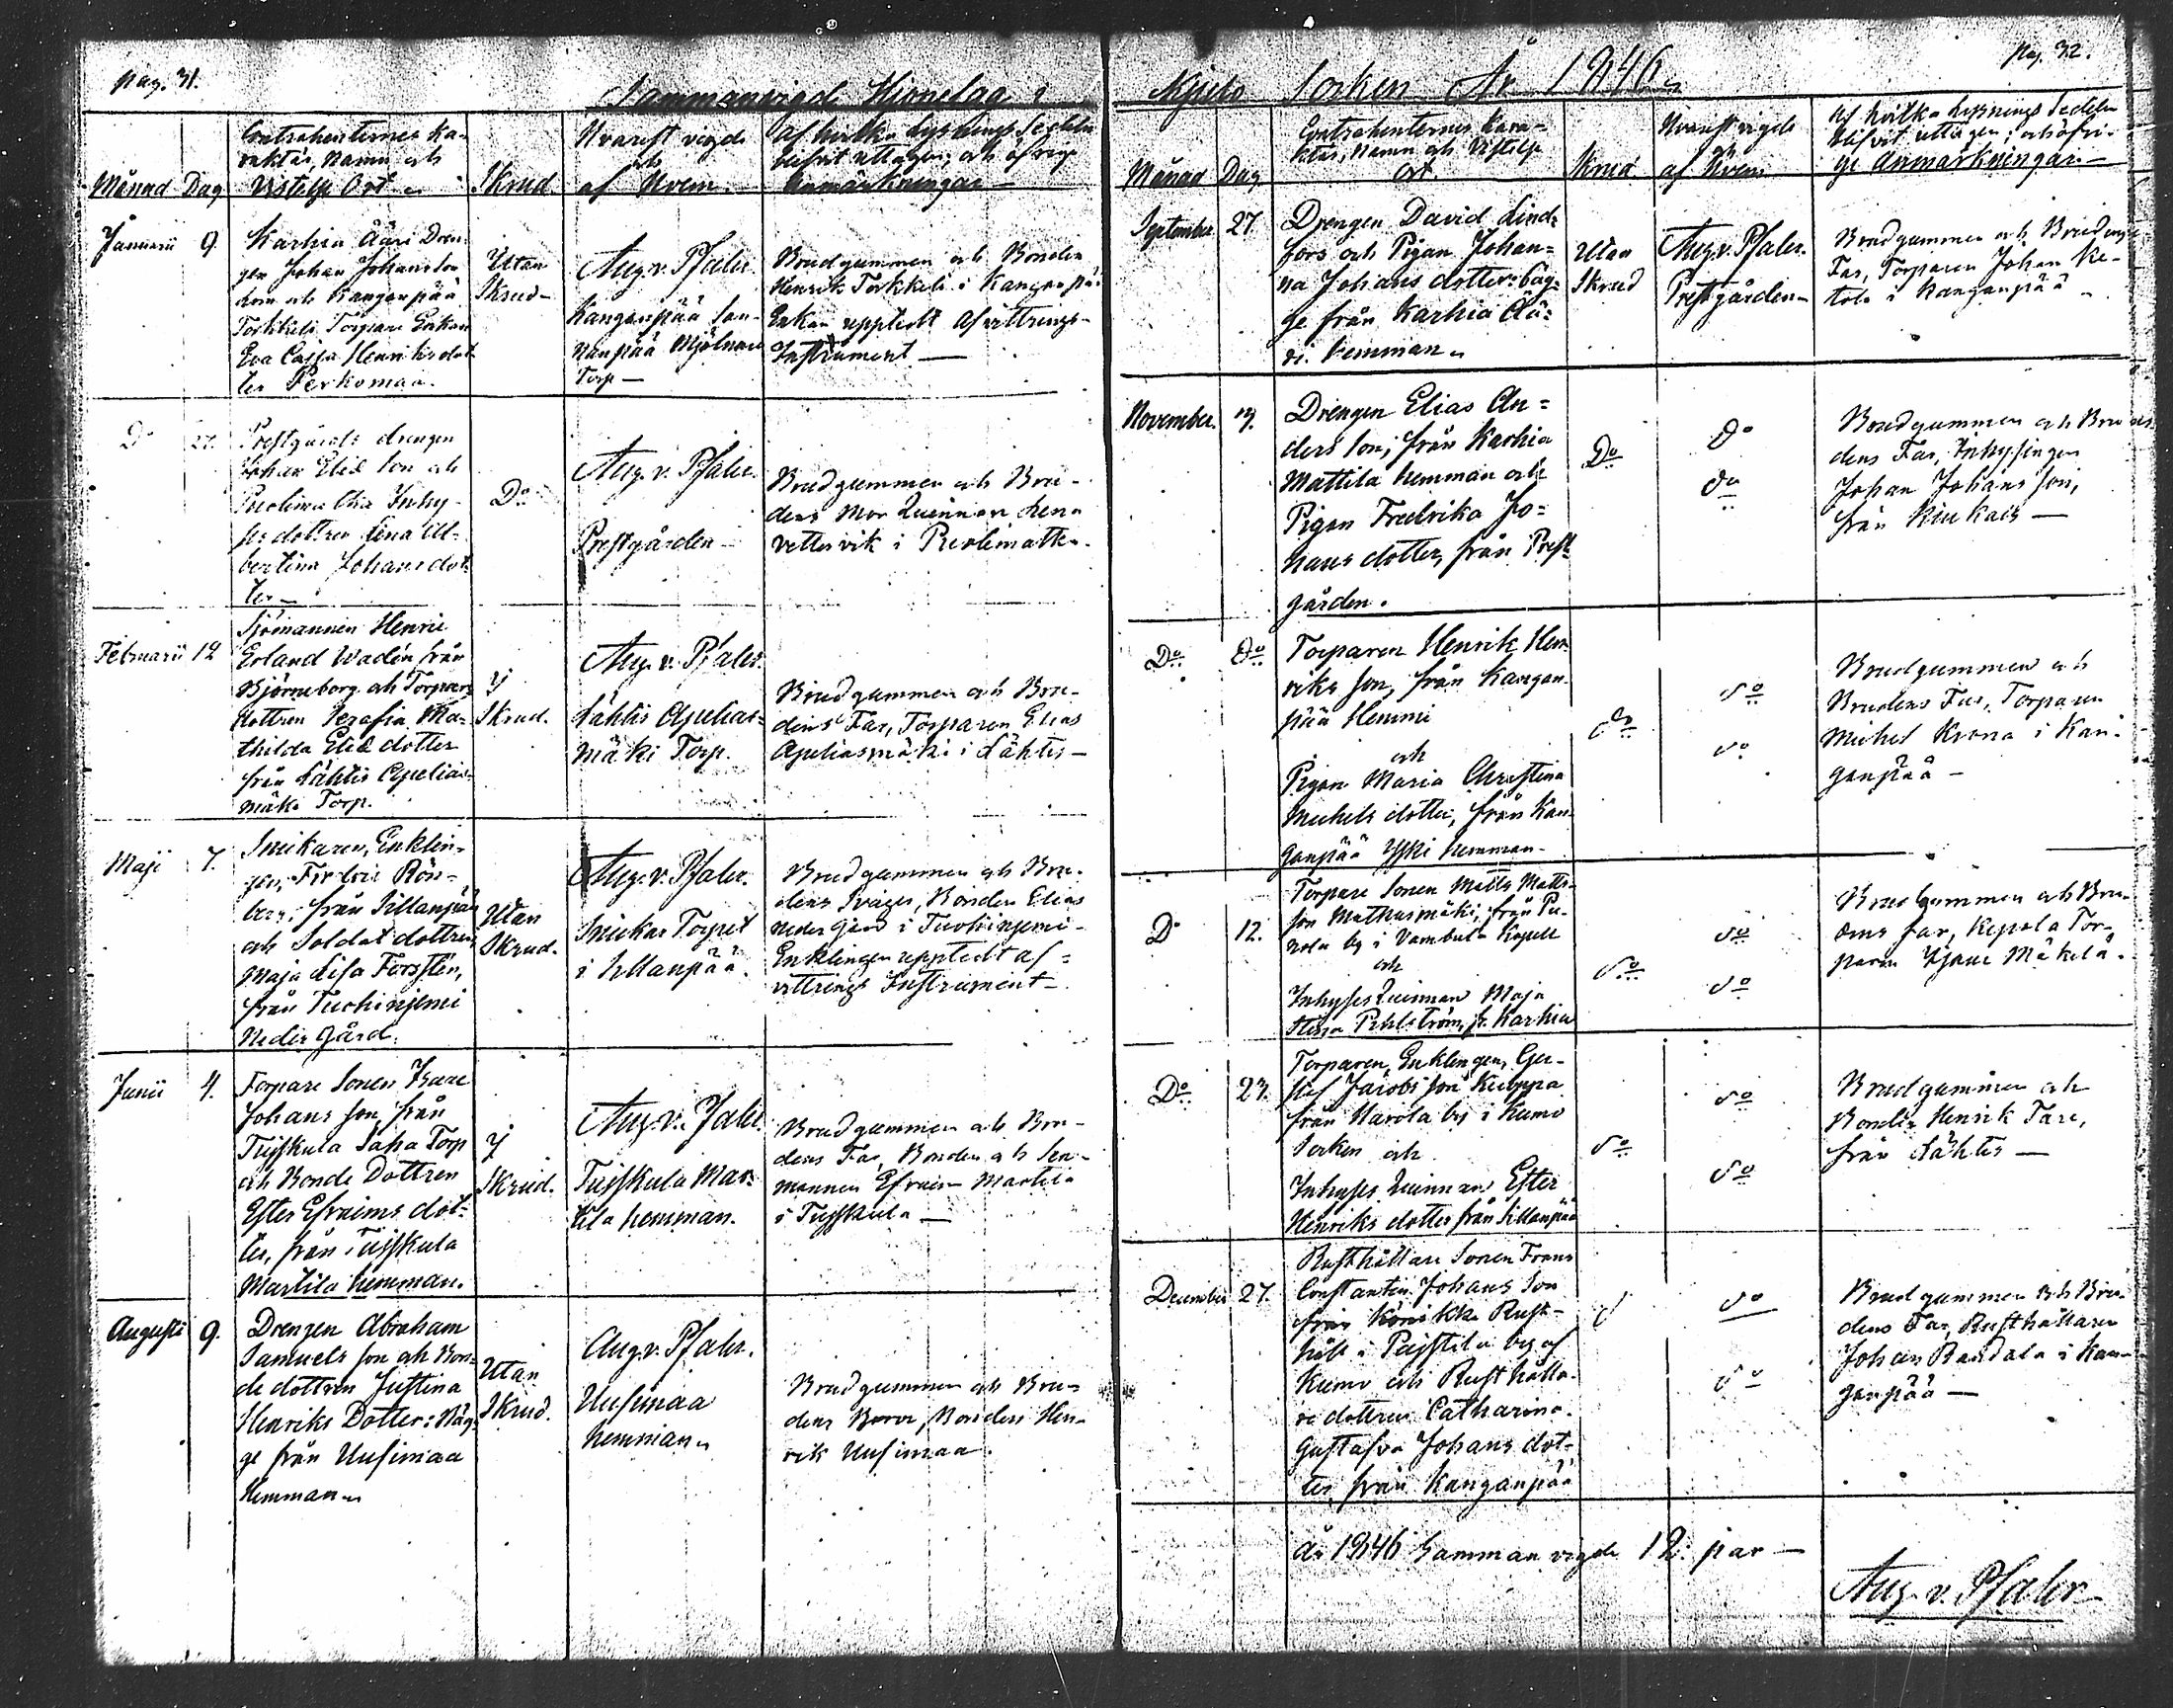 pag. 31.
Sammanvigde Hionelag i
Contrahenternes Ka-
raktär, Namn och
Vistelse Ort
Månad Dag
Skrud
Hvarest vigde
och
af Hvem
Af hvilka Lysnings Sedeln
blifvit uttagen; och öfrige
Anmärkningar
Januarii 9.
Karhia Ääri Dren-
gen Johan Johansson
och Kanganpää
Torkkeli Torpare Enkan
Eva Cajsa Henriksdot
ter Perkomaa.
Utan
Skrud
Aug. v. Pfaler.
Kanganpää
Mjölnare
Torp
Brudgummen och Bonden
Henrik Torkkeli i Kanganpää
Enkan uppledt Afvittrings-
Instrument
Do 27.
Prestgårds drengen
Johan Elis Son och
Inhy-
ses dottren Lena Al-
bertina Johans dot-
ter
Do
Aug. v. Pfaler.
Prestgården
Brudgummen och Bru-
dens Mor Quinnan Lena
i
Februarii 12
Sjömannen Henric
Erland Wadén från
Björneborg och Torpare
dottren Serafia Ma-
thilda Elis dotter
från Lähtis Apelias-
mäki Torp.
I
Skrud.
Aug. v. Pfaler.
Lähtis Apelias-
mäki Torp.
Brudgummen och Bru-
dens Far, Torparen Elias
Apeliasmäki i Lähtis
Maji 7.
Snikaren, Enklin-
gen, Fredric Rön-
berg, från Sillanpää
och Soldat dottren
Maja Lisa Forsstén,
från Tuohiniemi
Neder Gård.
Utan
Skrud.
Aug. v. Pfaler.
Snickar Torpet
i Sillanpää.
Brudgummen och Bru-
dens Svåger, Bonden Elias
Neder Gård i Tuohiniemi
Enklingen uppledt af-
vittrings Instrument
Junii 4.
Torpare Sonen Isaac
Johans son från
Tuiskula Saha Torp
och Bonde Dottren
Ester Efraims dot-
ter, från Tuiskula
Martila hemman.
I
Skrud.
Aug. v. Pfaler.
Tuiskula Mar-
tila hemman.
Brudgummen och Bru-
dens Far, Bonden och
Efraim Martila
i Tuiskula
Augusti 9.
Drengen Abraham
Samuels son och Bon-
de dottren Justina
Henriks Dotter: Båg-
ge från Uusimaa
Hemman
Utan
Skrud.
Aug. v. Pfaler.
Uusimaa
hemman
Brudgummen och Bru-
dens Bror, Bonden Hen-
rik Uusimaa.
pag. 32.
Kjulo Socken År 1846
Månad Dag
Contrahenternes Kara-
ktär, Namn och Vistelse
Ort
Skrud
Hvarest vigde
af Hvem
Af hvilka Lysnings Sedeln
blifvit uttagen; och öfri-
ge Anmärkningar.
September 27.
Drengen David Lind-
fors och Pigan Johan-
na Johans dotter: båg-
ge från Karhia Ää-
ri hemman
Utan
Skrud
Aug. v. Pfaler.
Prestgården
Brudgummen och Brudens
Far, Torparen Johan Ke-
tola i Kanganpää
November. 7.
Drengen Elias An-
ders son, från Karhia
Mattila hemman och
Pigan Fredrika Jo-
hans dotter, från Prest
gården.
Do
Do
Do
Brudgummen och Bru-
dens Far, Inhysingen
Johan Johans son,
från Kiukais
Do Do
Torparen Henrik Hen-
riks son, från Kangan-
pää Hemmi
och
Pigan Maria Christina
Michels dotter, från Kan-
ganpää Yski hemman
Do
Do
Do
Brudgummen och
Brudens Far, Torparen
Michel Krona i Kan-
ganpää
Do 12.
Torpare Sonen Matts Matts-
son Matkusmäki, från Pu-
nola by i Vambula Kapell
och
Inhyses Quinnan Maja
Stina Pihlström, fr. Karhia
Do
Do
Do
Brudgummen och Bru-
dens far, Kepola Tor-
paren Mäkelä.
Do 23.
Torparen, Enklingen, Gu-
staf Jacobs son Kuoppa
från Harola by i Kumo
Socken och
Inhyses Quinnan Ester
Henriks dotter från Sillanpää
Do
Do
Do
Brudgummen och
Bonden Henrik Tare,
från Lähtis
December 27.
Rusthållare Sonen Frans
Constantin Johans Son
från Rust-
håll i by af
Kumo och Rusthålla-
re dottren Catharina
Gustafva Johans dot-
ter från Kanganpää
Do
Do
Brudgummen och Bru-
dens Far, Rusthållaren
Johan Randala i Kan-
ganpää
År 1846 Samman vigde 12 par
Aug. v. Pfaler